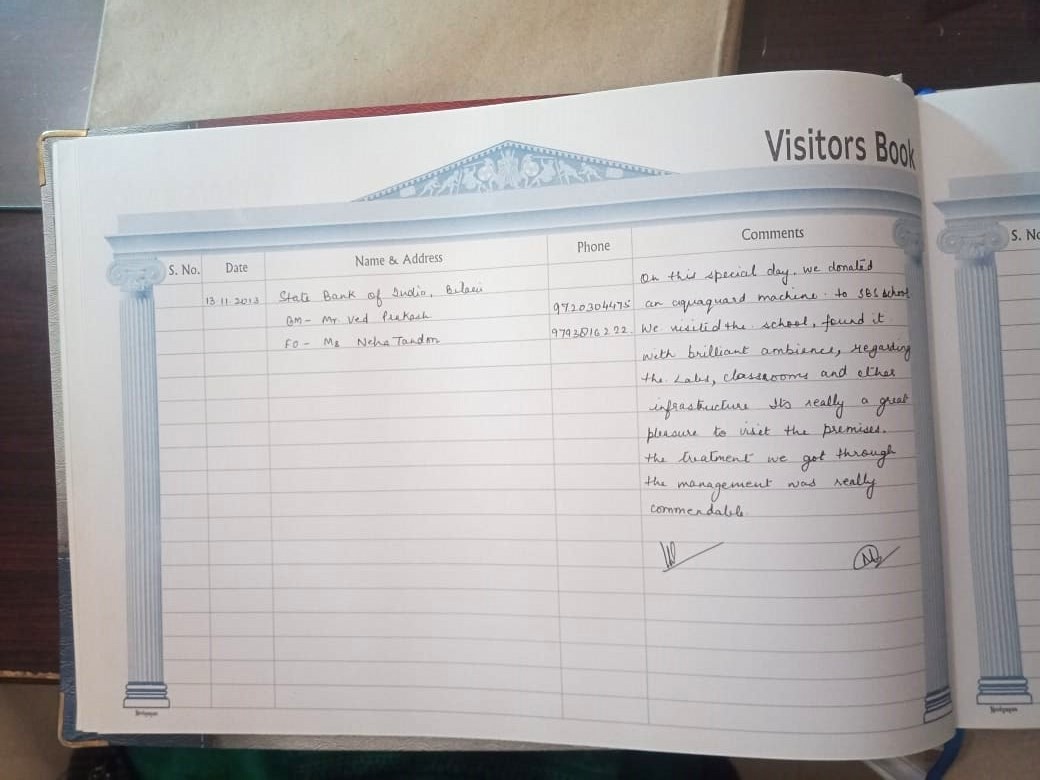 Visitors Book
S. No.
Date
Name & Address
Phone
Comments
S. No
13 11 2013
State Bank of India, Bilari
BM - Mr. Ved Prakash
9720304475
FO - Ms Neha Tandon
9793816222
On this special day, we donated
an aquaguard machine to SBS school
We visited the school, found it
with brilliant ambience, regarding
the Labs, classrooms and other
infrastructure Its really a great
pleasure to visit the premises.
the treatment we got through
the management was really
commendable.